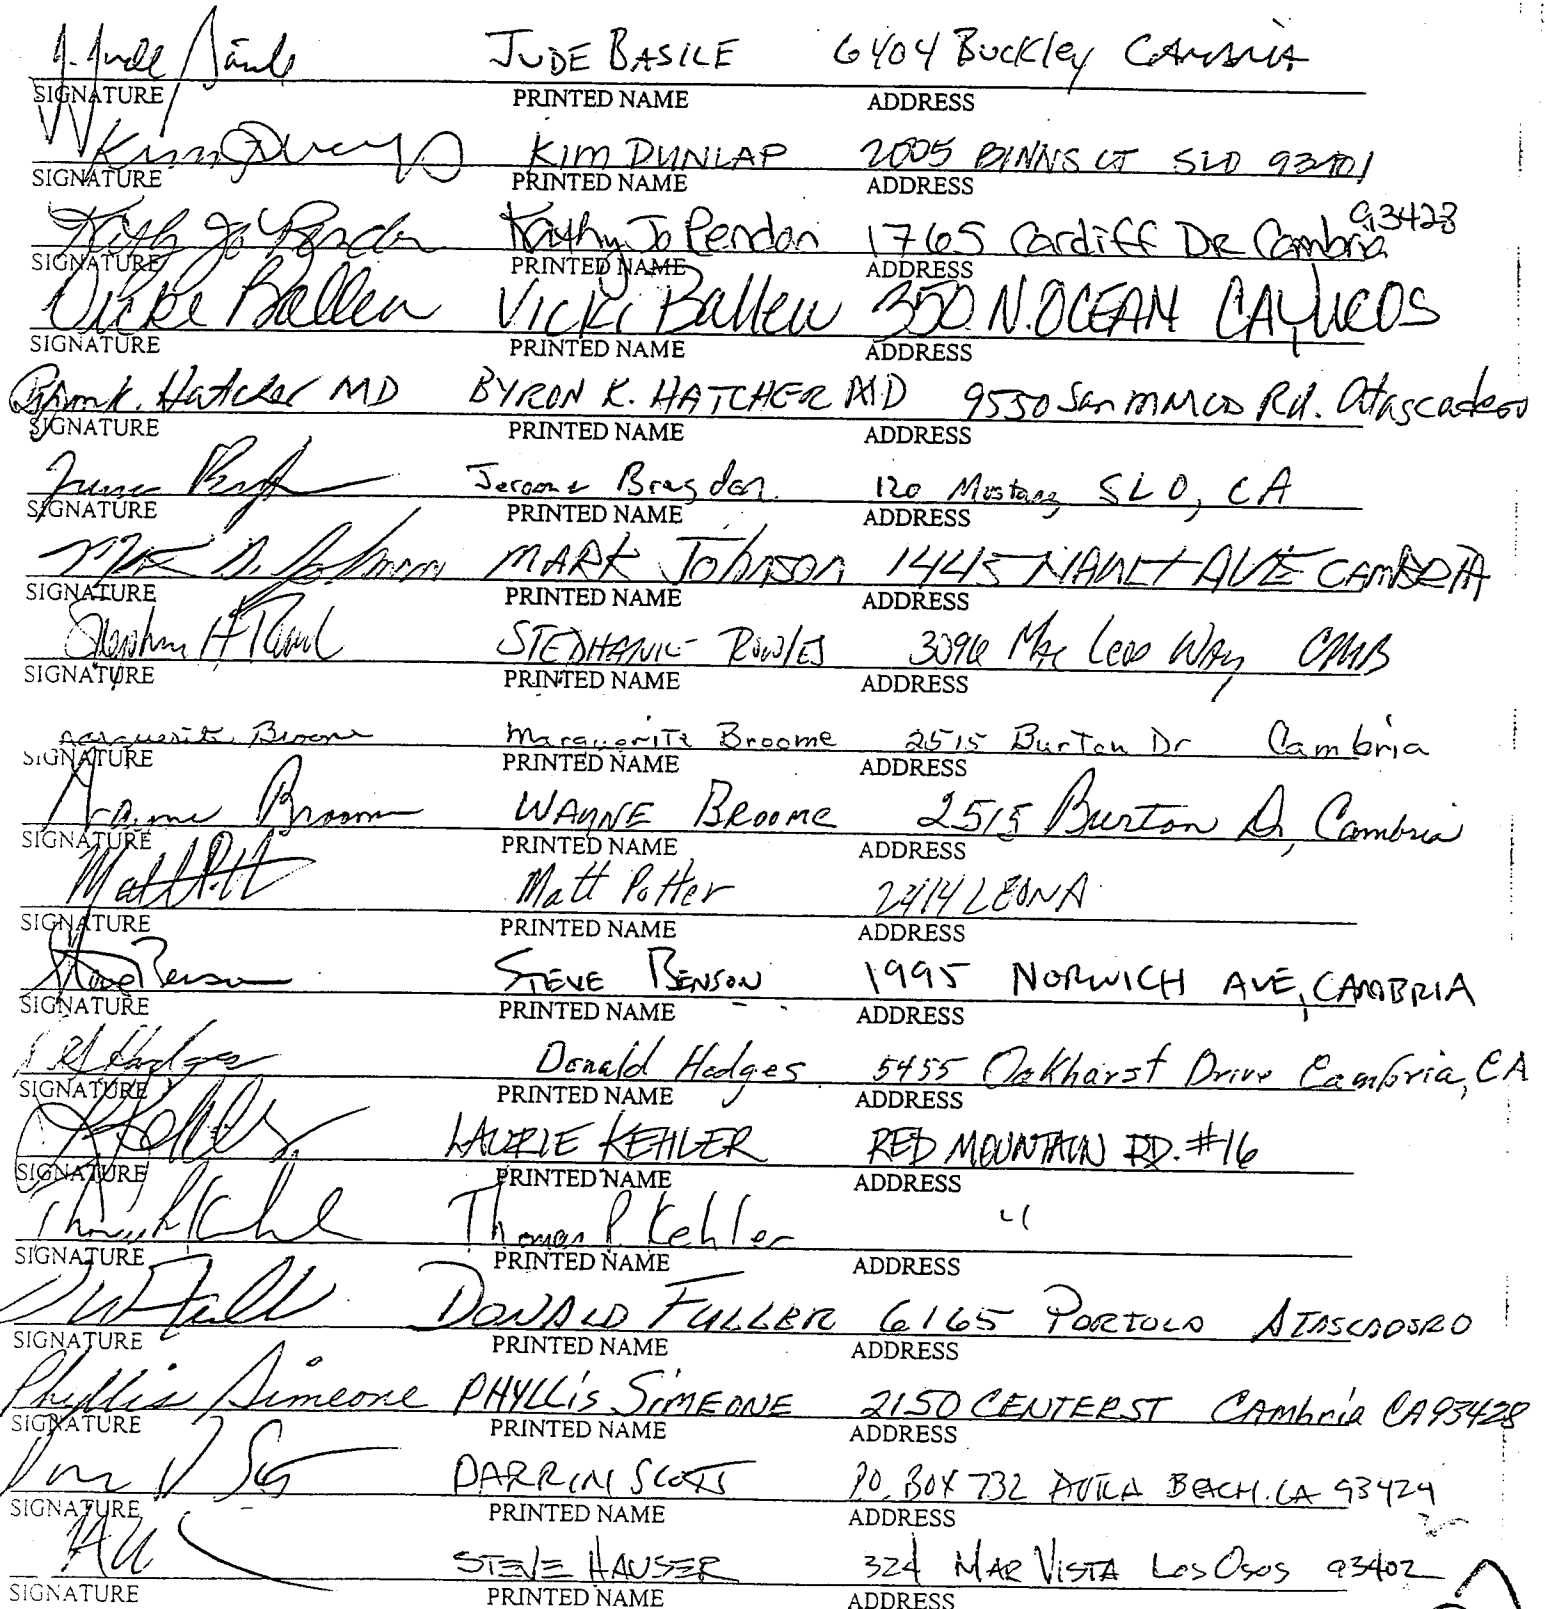 J. Jude JUDE BASILE 6404 Buckley CAMBRIA
SIGNATURE PRINTED NAME ADDRESS
Kim KIM DUNLAP 2005 BINNS CT SLO 93401
SIGNATURE PRINTED NAME ADDRESS
Kathy Jo Pendon Kathy Jo Pendon 1765 Cardiff DR Cambria 93428
SIGNATURE PRINTED NAME ADDRESS
Vicki Ballew Vicki Ballew 350 N. OCEAN CAYUCOS
SIGNATURE PRINTED NAME ADDRESS
Byron K. Hatcher MD BYRON K. HATCHER MD 9550 San Marcos Rd. Atascadero
SIGNATURE PRINTED NAME ADDRESS
Jerome Bragdon 120 Mustang SLO, CA
SIGNATURE PRINTED NAME ADDRESS
Mark D. Johnson MARK JOHNSON 1445 AVE CAMBRIA
SIGNATURE PRINTED NAME ADDRESS
STEPHANIE ROWLES Mac Leod Way, CAMB
SIGNATURE PRINTED NAME ADDRESS
Marguerite Broome Marguerite Broome 2515 Burton Dr Cambria
SIGNATURE PRINTED NAME ADDRESS
Wayne Broome WAYNE BROOME 2515 Burton Dr, Cambria
SIGNATURE PRINTED NAME ADDRESS
Matt Matt Potter 2414 LEONA
SIGNATURE PRINTED NAME ADDRESS
Steve Benson STEVE BENSON 1995 NORWICH AVE, CAMBRIA
SIGNATURE PRINTED NAME ADDRESS
Hodges Donald Hodges 5455 Oakhurst Drive Cambria, CA
SIGNATURE PRINTED NAME ADDRESS
LAURIE KEHLER RED MOUNTAIN RD. #16
SIGNATURE PRINTED NAME ADDRESS
Thomas P. Kehler "
SIGNATURE PRINTED NAME ADDRESS
DONALD FULLER 6165 PORTOLA ATASCADERO
SIGNATURE PRINTED NAME ADDRESS
Phyllis Simeone PHYLLIS SIMEONE 2150 CENTER ST Cambria CA 93428
SIGNATURE PRINTED NAME ADDRESS
DARRIN SCOTT P.O. BOX 732 AVILA BEACH. CA 93424
SIGNATURE PRINTED NAME ADDRESS
STEVE HAUSER 324 MAR VISTA Los Osos 93402
SIGNATURE PRINTED NAME ADDRESS